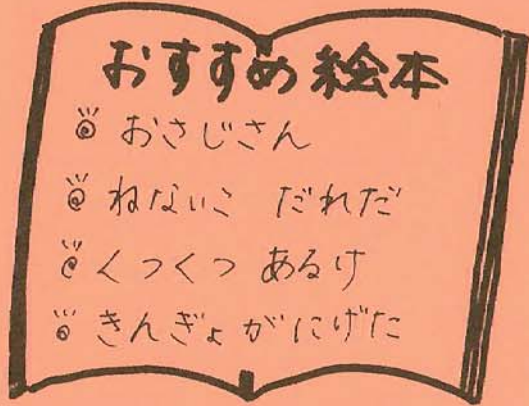 おすすめ絵本
おさじさん
ねないこ だれだ
くつくつ あるけ
きんぎょ が にげた